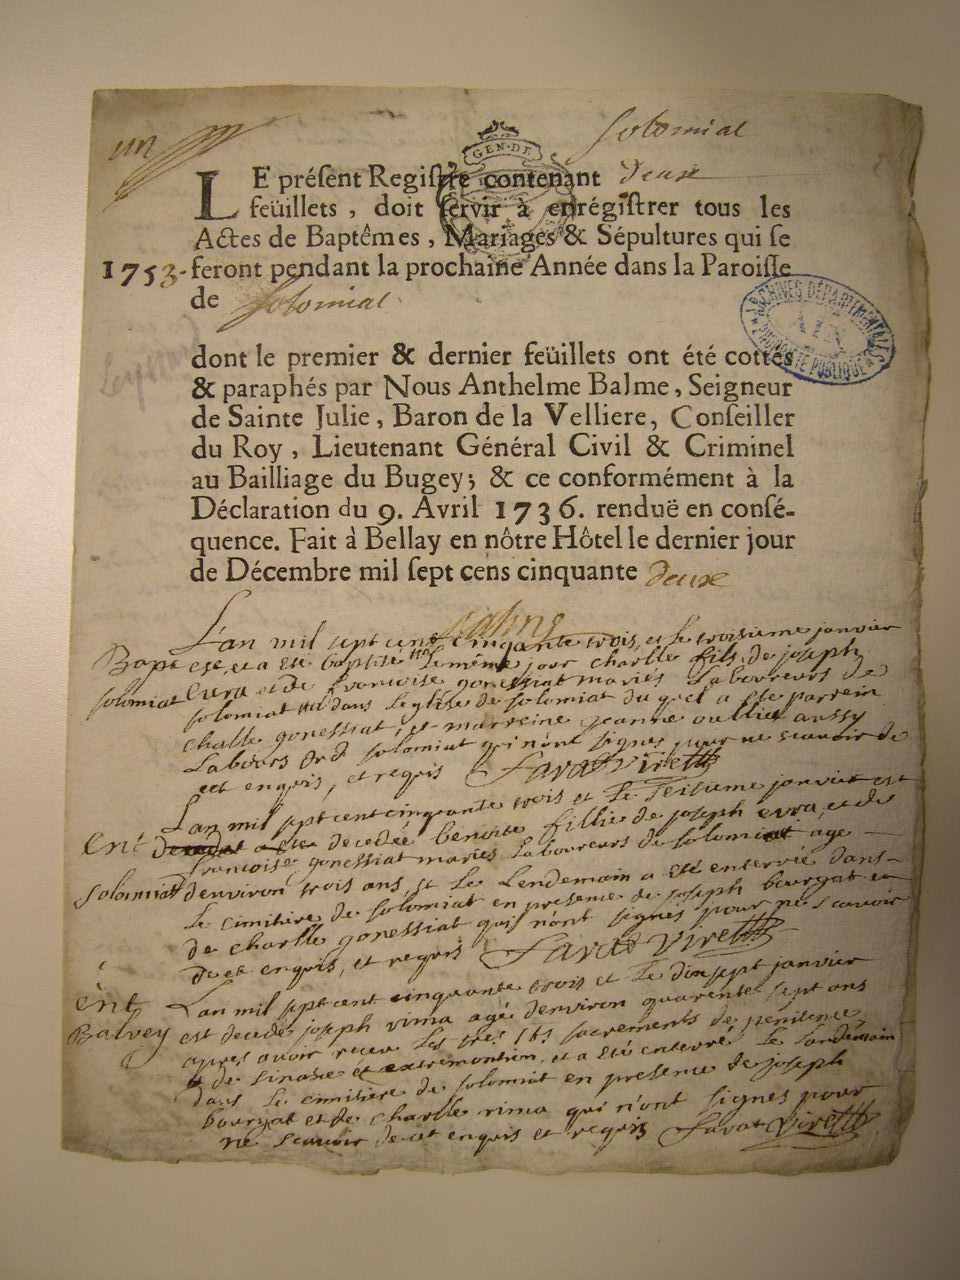 un
Solomial
GEN·DE
LE préſent Regiſtre contenant deux
feüillets, doit ſervir à enrégiſtrer tous les
Actes de Baptêmes, Mariages & Sépultures qui ſe
1753. feront pendant la prochaine Année dans la Paroiſſe
de Solomial
ARCHIVES DÉPARTEMENTALES
AIN
PUBLIQUE
dont le premier & dernier feüillets ont été cottés
& paraphés par Nous Anthelme Balme, Seigneur
de Sainte Julie, Baron de la Velliere, Conſeiller
du Roy, Lieutenant Général Civil & Criminel
au Bailliage du Bugey; & ce conformément à la
Déclaration du 9. Avril 1736. renduë en conſé-
quence. Fait à Bellay en nôtre Hôtel le dernier jour
de Décembre mil ſept cens cinquante deux
L'an mil sept cent cinquante trois, et le troisieme janvier
Bapt est et a été baptisé le même jour charlle fils de joseph
solomiat Evra et de françoise gonessiat mariés Laboureurs de
solomiat dans L'eglise de solomiat duquel a été parrein
charlle gonessiat, et marreine jeanne oullié aussy
Labours dud solomiat qui n'ont signés pour ne scavoir de
cet enquis, et requis Savat Virett
L'an mil sept cent cinquante trois et Le seisieme janvier est
Ent decedée benoite fillie de joseph evra, et de
françoise gonessiat mariés Laboureurs de solomiat age
Solomiat d'environ trois ans, et Le Lendemain a été enterrée dans
Le cimitiere de solomiat en presence de joseph bourgat et
de charlle gonessiat qui n'ont signés pour ne scavoir
de cet enquis, et requis Savat Virett
ent L'an mil sept cent cinquante trois et Le dixsept janvier
Balvey est decedé joseph vima agé d'environ quarente sept ans
apres avoir receu Les sacrements de penitence
et extremontion, et a été enterré Le Landemain
dans Le cimitiere de solomiat en presence de joseph
bourgat et de charlle vima qui n'ont signés pour
ne scavoir de cet enquis et requis Savat Virett